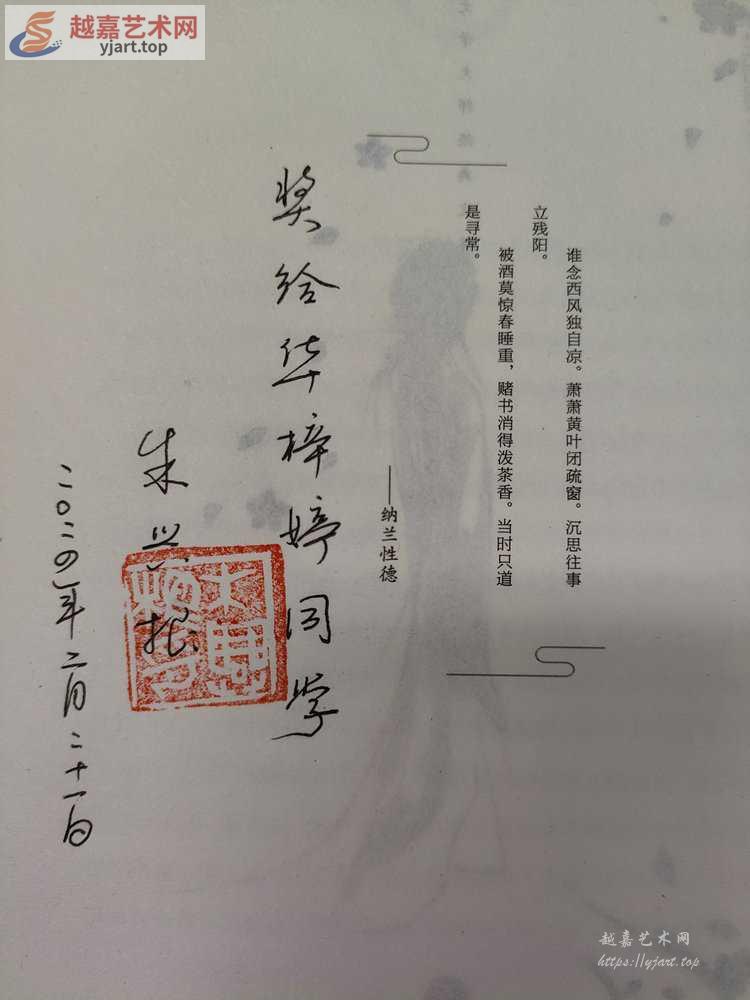 越嘉艺术网
yjart.top
谁念西风独自凉。萧萧黄叶闭疏窗。沉思往事
立残阳。
被酒莫惊春睡重，赌书消得泼茶香。当时只道
是寻常。
——纳兰性德
奖给华梓婷同学
朱兴根
二〇二四年二月二十一日
越嘉艺术网
https://yjart.top